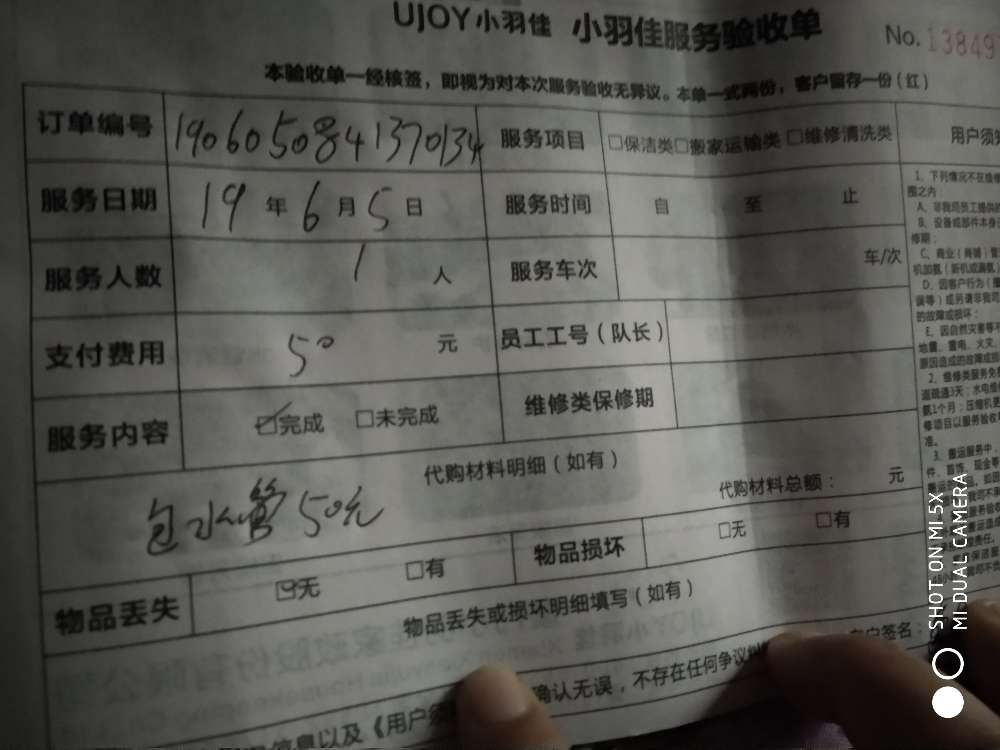 UJOY小羽佳 小羽佳服务验收单
No. 13849
本验收单一经核签，即视为对本次服务验收无异议。本单一式两份，客户留存一份（红）
订单编号 1906050841370134 服务项目 □保洁类□搬家运输类 □维修清洗类
服务日期 19 年 6 月 5 日 服务时间 自 至 止
服务人数 1 人 服务车次 车/次
支付费用 50 元 员工工号（队长）
服务内容 ☑完成 □未完成 维修类保修期
代购材料明细（如有）
包水管50元
代购材料总额： 元
物品丢失 ☑无 □有 物品损坏 □无 □有
物品丢失或损坏明细填写（如有）
信息以及《用户须
确认无误，不存在任何争议
客户签名：
用户须
1、下列情况不在
围之内：
A、非我司员工提供
B、设备或部件本身
修期；
C、商业（商铺）
机加氨（新机或漏氨
D、因客户行为
误等）或另请非我司
的故障或损坏；
E、因自然灾害等
地震、雷电、火灾、
原因造成的故障或
2、维修类服务免
道疏通3天；水电维
氨1个月；压缩机更
修项目以服务验收
准。
3、搬运服务中，
件、首饰、现金等
SHOT ON MI 5X
MI DUAL CAMERA